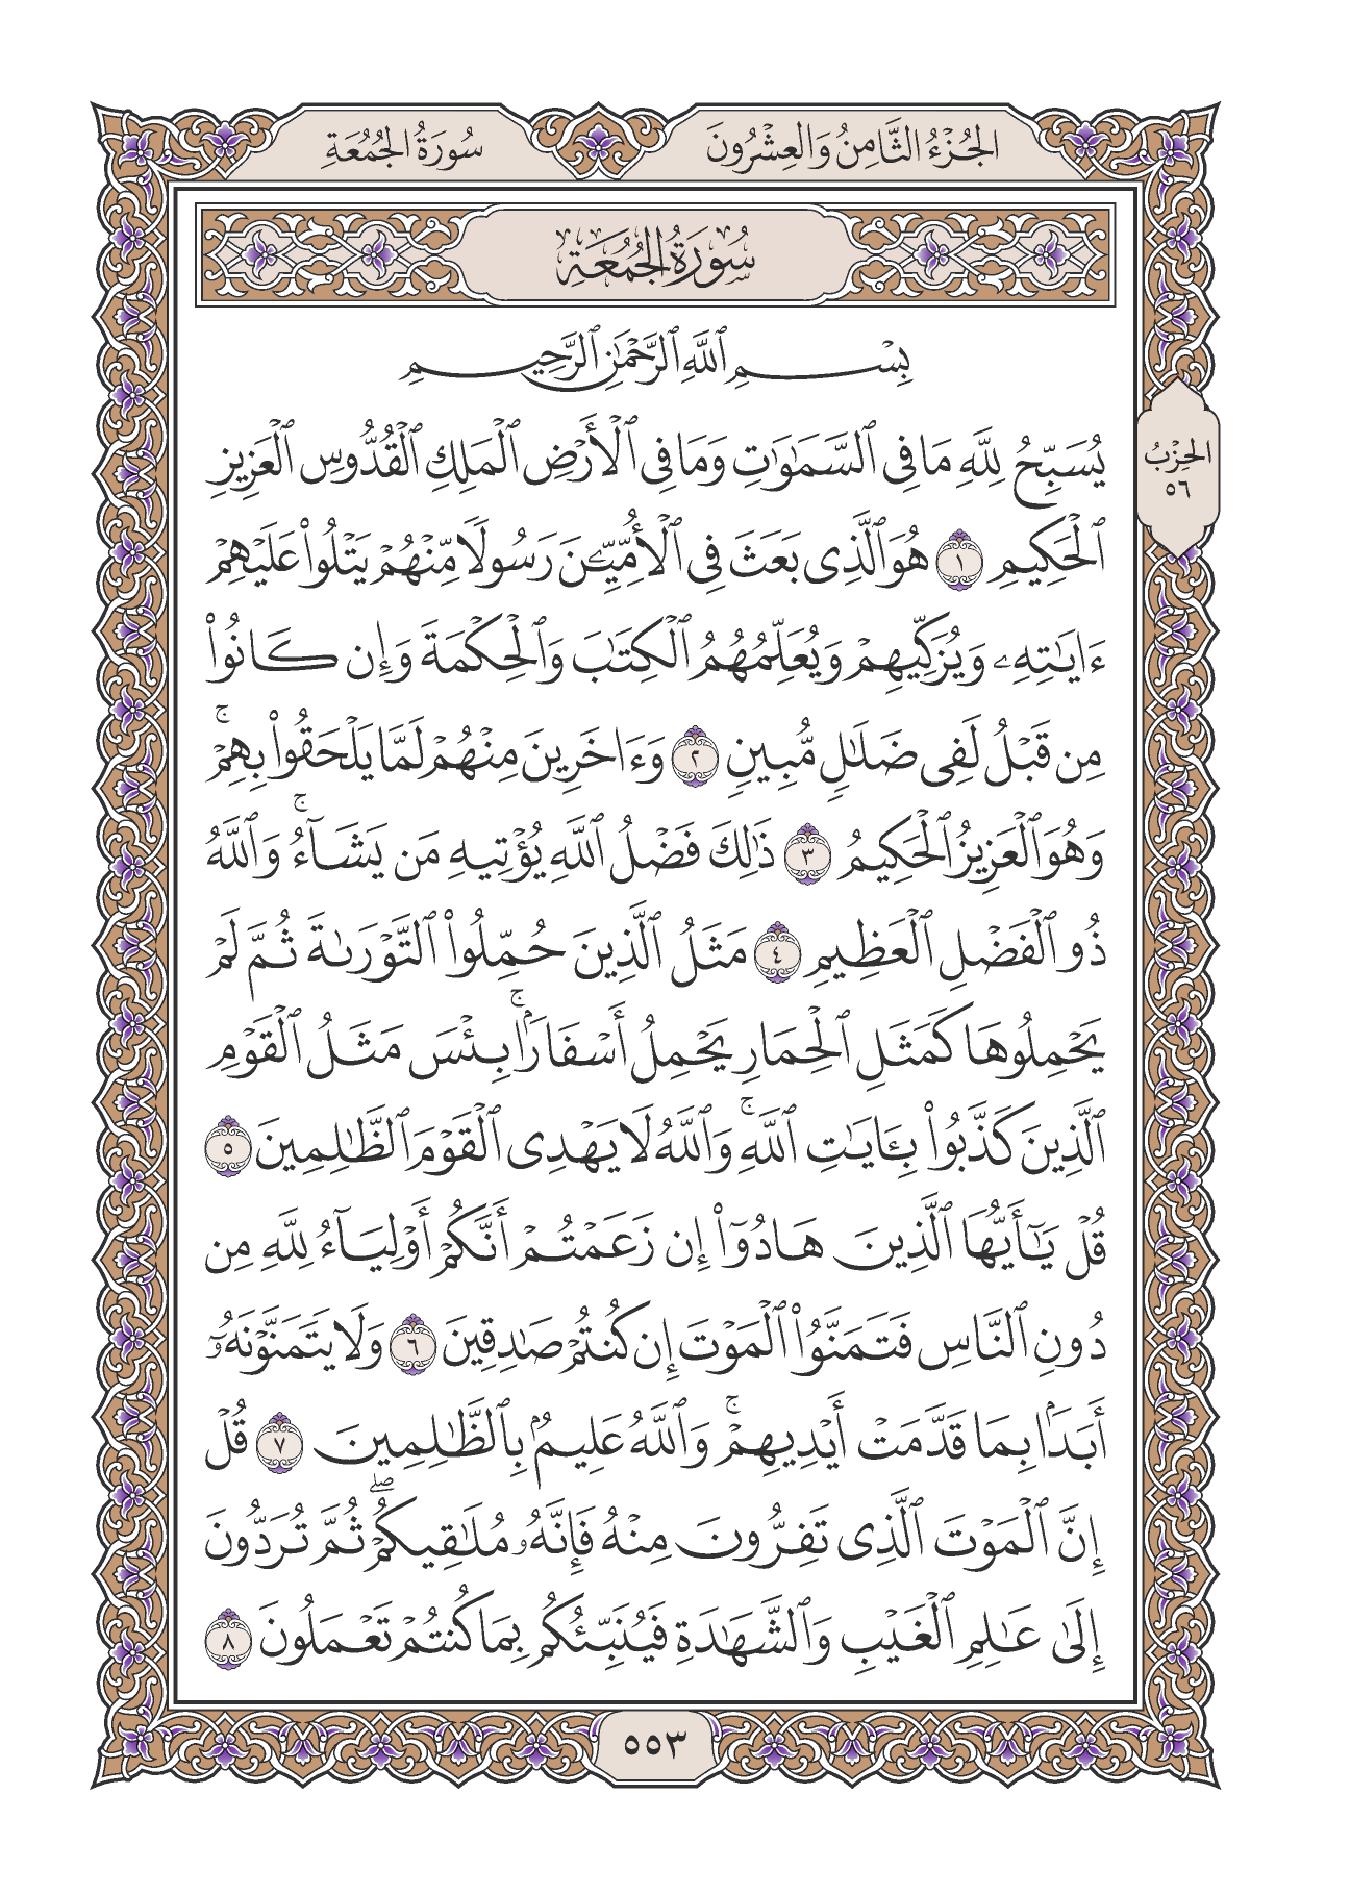 الجُزْءُ الثَّامِنُ وَالعِشْرُونَ
سُورَةُ الجُمُعَةِ
سُورَةُ الجُمُعَةِ
بِسْمِ ٱللَّهِ ٱلرَّحْمَٰنِ ٱلرَّحِيمِ
يُسَبِّحُ لِلَّهِ مَا فِي ٱلسَّمَٰوَٰتِ وَمَا فِي ٱلْأَرْضِ ٱلْمَلِكِ ٱلْقُدُّوسِ ٱلْعَزِيزِ
الحِزْبُ
٥٦
ٱلْحَكِيمِ ١ هُوَ ٱلَّذِي بَعَثَ فِي ٱلْأُمِّيِّۦنَ رَسُولًا مِّنْهُمْ يَتْلُوا۟ عَلَيْهِمْ
ءَايَٰتِهِۦ وَيُزَكِّيهِمْ وَيُعَلِّمُهُمُ ٱلْكِتَٰبَ وَٱلْحِكْمَةَ وَإِن كَانُوا۟
مِن قَبْلُ لَفِي ضَلَٰلٍ مُّبِينٍ ٢ وَءَاخَرِينَ مِنْهُمْ لَمَّا يَلْحَقُوا۟ بِهِمْ ۚ
وَهُوَ ٱلْعَزِيزُ ٱلْحَكِيمُ ٣ ذَٰلِكَ فَضْلُ ٱللَّهِ يُؤْتِيهِ مَن يَشَآءُ ۚ وَٱللَّهُ
ذُو ٱلْفَضْلِ ٱلْعَظِيمِ ٤ مَثَلُ ٱلَّذِينَ حُمِّلُوا۟ ٱلتَّوْرَىٰةَ ثُمَّ لَمْ
يَحْمِلُوهَا كَمَثَلِ ٱلْحِمَارِ يَحْمِلُ أَسْفَارًۢا ۚ بِئْسَ مَثَلُ ٱلْقَوْمِ
ٱلَّذِينَ كَذَّبُوا۟ بِـَٔايَٰتِ ٱللَّهِ ۚ وَٱللَّهُ لَا يَهْدِي ٱلْقَوْمَ ٱلظَّٰلِمِينَ ٥
قُلْ يَٰٓأَيُّهَا ٱلَّذِينَ هَادُوٓا۟ إِن زَعَمْتُمْ أَنَّكُمْ أَوْلِيَآءُ لِلَّهِ مِن
دُونِ ٱلنَّاسِ فَتَمَنَّوُا۟ ٱلْمَوْتَ إِن كُنتُمْ صَٰدِقِينَ ٦ وَلَا يَتَمَنَّوْنَهُۥٓ
أَبَدًۢا بِمَا قَدَّمَتْ أَيْدِيهِمْ ۚ وَٱللَّهُ عَلِيمٌۢ بِٱلظَّٰلِمِينَ ٧ قُلْ
إِنَّ ٱلْمَوْتَ ٱلَّذِي تَفِرُّونَ مِنْهُ فَإِنَّهُۥ مُلَٰقِيكُمْ ۖ ثُمَّ تُرَدُّونَ
إِلَىٰ عَٰلِمِ ٱلْغَيْبِ وَٱلشَّهَٰدَةِ فَيُنَبِّئُكُم بِمَا كُنتُمْ تَعْمَلُونَ ٨
٥٥٣